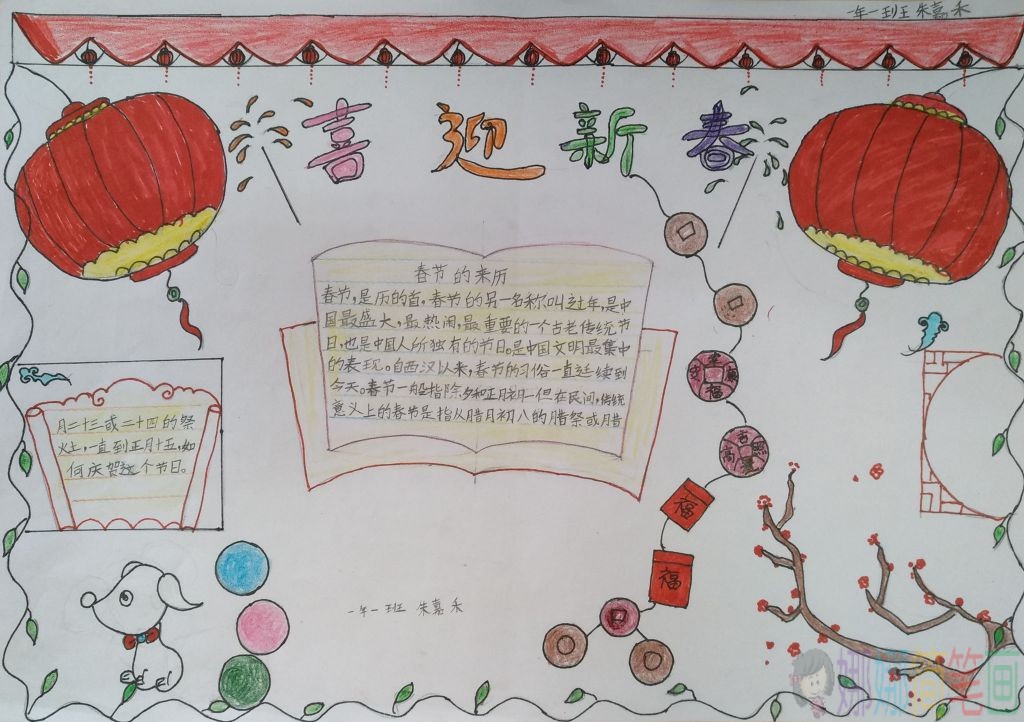 一年一班 朱嘉禾
喜迎新春
春节的来历
春节,是历的首。春节的另一名称叫过年,是中
国最盛大,最热闹,最重要的一个古老传统节
日,也是中国人所独有的节日。是中国文明最集中
的表现。自西汉以来,春节的习俗一直延续到
今天。春节一般指除夕和正月初一但在民间,传统
意义上的春节是指从腊月初八的腊祭或腊
月二十三或二十四的祭
灶,一直到正月十五,如
何庆贺这个节日。
福
福
福
一年一班 朱嘉禾
娜娜简笔画